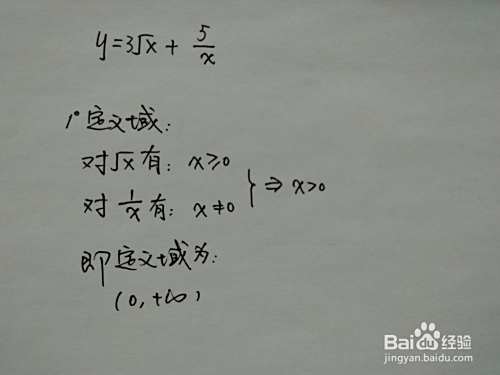 y=3√x + 5/x
1° 定义域:
对√x有: x≥0
对 1/x 有: x≠0 } ⇒ x>0
即定义域为:
(0,+∞)
Baidu经验
jingyan.baidu.com